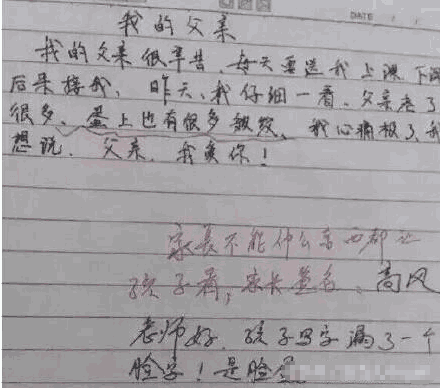 我的父亲
我的父亲很辛苦、每天要送我上课、下课
后来接我、昨天、我仔细一看、父亲老了
很多、蛋上也有很多皱纹、我心痛极了、我
想说、父亲、我爱你！
家长不能什么东西都让
孩子看，家长签名、高风
老师好、孩子写字漏了一个
脸字！是脸蛋